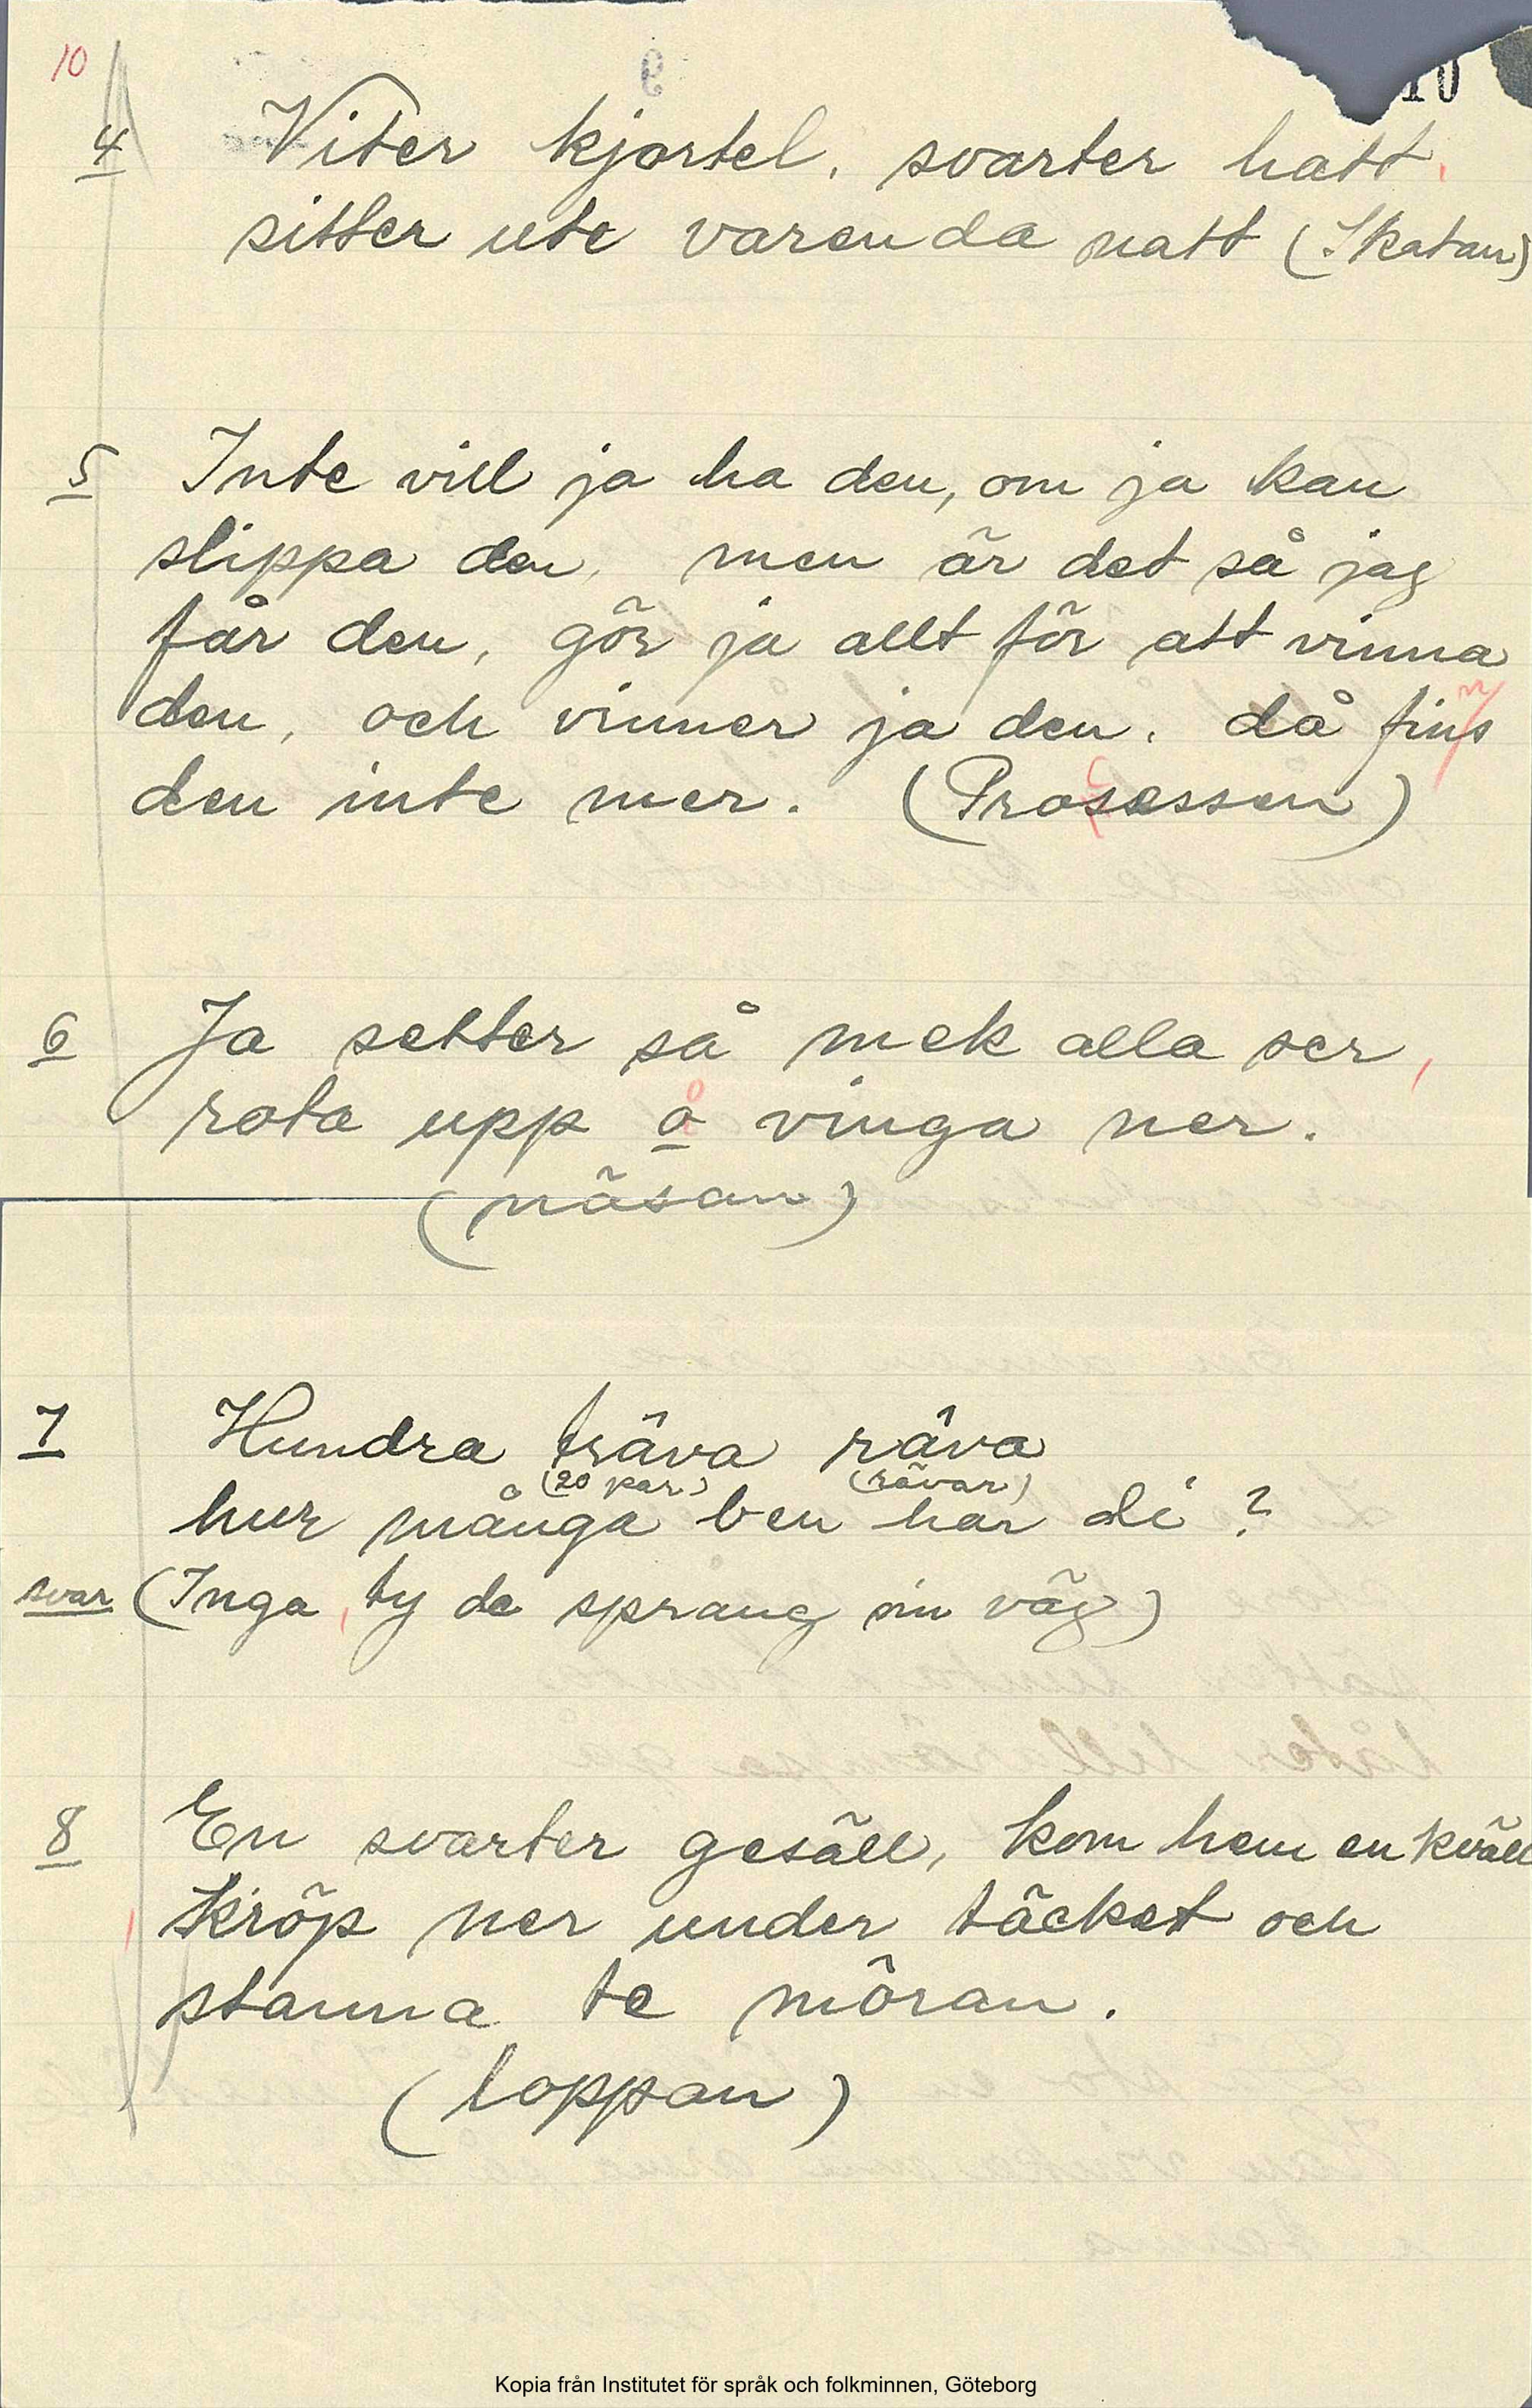 10
10
9
4 Viter kjortel, svarter hatt,
sitter ute varenda natt (Skatan)
5 Inte vill ja ha den, om ja kan
slippa den, men är det så jag
får den, gör ja allt för att vinna
den, och vinner ja den, då fins
n
den inte mer. (Prosessen)
c
6 Ja setter så mek alla ser,
rota upp o vinga ner.
(näsan)
7 Hundra träva räva
(20 par) (rävar)
hur många ben har di ?
svar (Inga, ty de sprang sin väg)
8 En svarter gesäll, kom hem en kväll
kröp ner under täcket och
stanna te möran.
(loppan)
Kopia från Institutet för språk och folkminnen, Göteborg